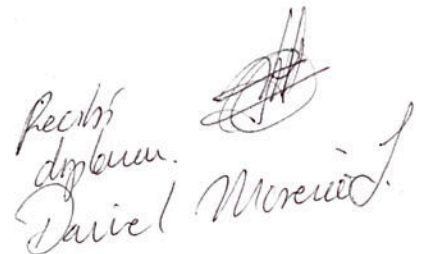 Recibí
diploma.
Daniel Moreno J.